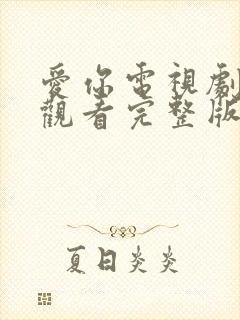 愛你電視劇
觀看完整版
夏日炎炎